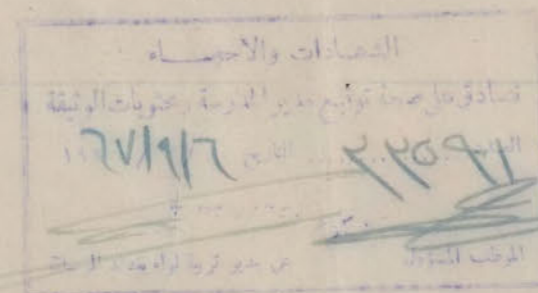 الشهادات والاحصاء
نصادق على صحة توقيع مدير المدرسة ومحتويات الوثيقة
٣٣٥٩١ التاريخ ٦٧/٩/٦ ١٩
الموظف المسؤول عن مدير تربية لواء بغداد الرصافة